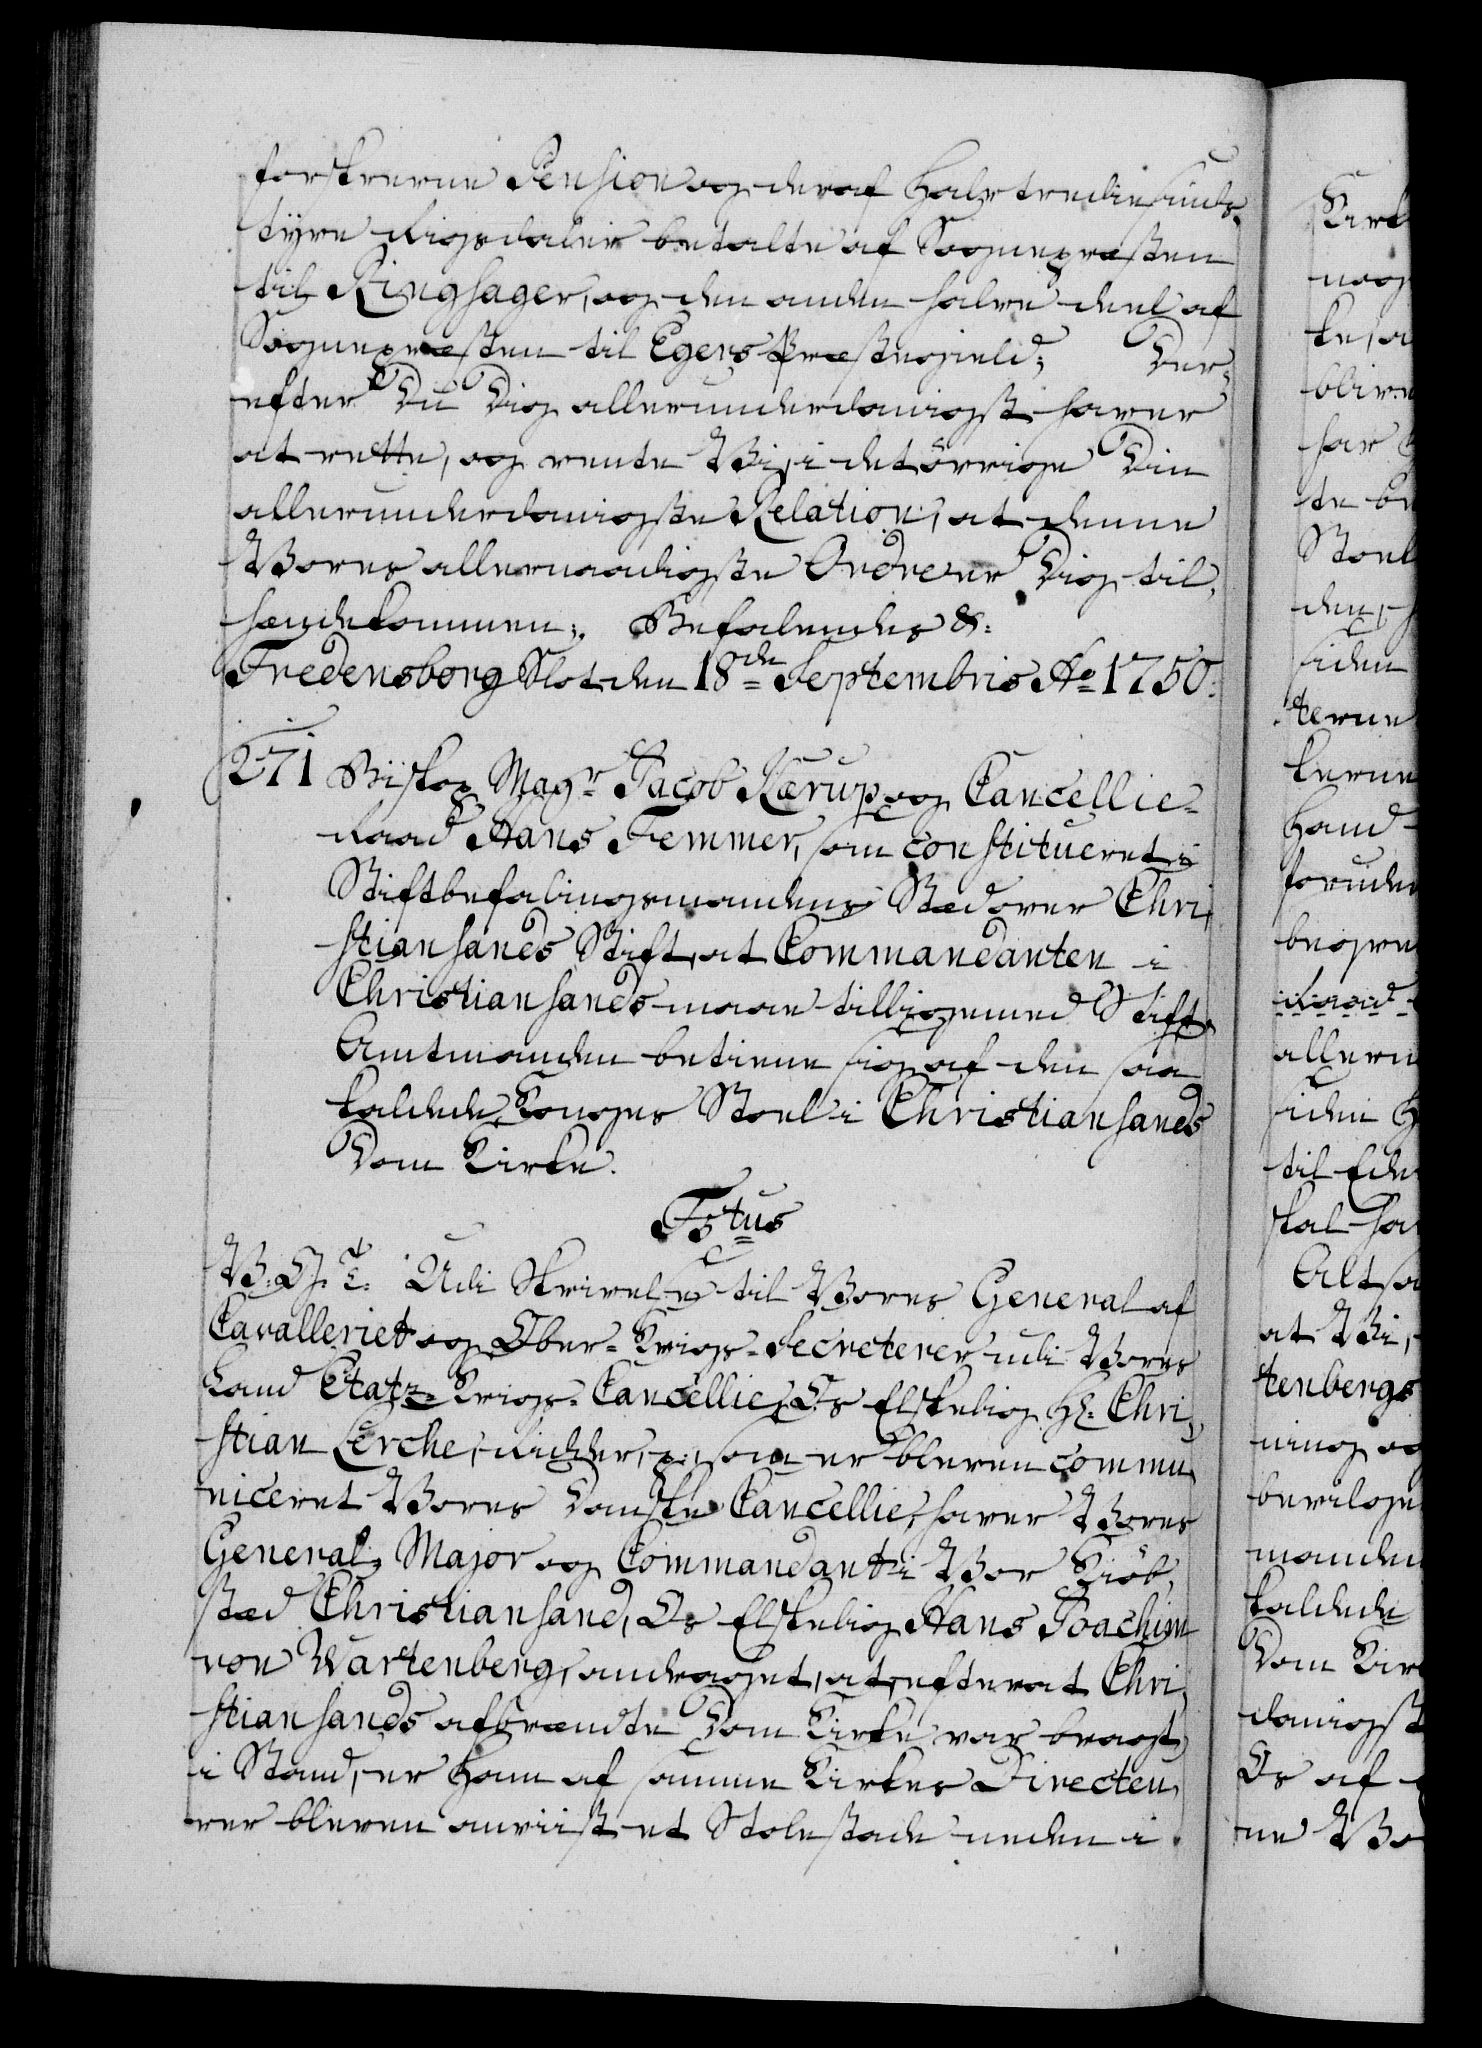 forskrevne Pension og deraf halvtredie sinds-
tÿve Rigsdaler betalte af Sognepræsten
til Ringsager, og den anden halve deel af
Sognepræsten til Egers Præstegield; Der-
efter Du Dig allerunderdanigst haver
at rette, og vente Vi, i det övrige Din
allerunderdanigste Relation, at denne
Vores allernaadigste Ordre er Dig til-
hændekommen. Befalendes &:
Fredensborg Slot den 18de Septembris Ao 1750.
271 Biskop Magr Jacob Kærup og Cancellie-
Raad Hans Femmer, som constitueret i
Stiftbefalingsmandens Sted over Chri-
stiansands Stift, at Commandanten i
Christiansands maae tilligemed Stift-
Amtmanden betiene sig af den saa
kaldede Konges Stoel i Christiansands
Dom Kirke.
Fstus
V. G. T. Udi Skrivelse til Vores General af
Cavalleriet og Ober-Krigs-Secreterer udi Vores
Land Etatz-Krigs-Cancellie, Os Elskelig Hr. Chri-
stian Lerche, Ridder, som er bleven commu-
niceret Vores Danske Cancellie, haver Vores
General-Major og Commandant i Vor Kiöb-
sted Christiansand, Os Elskelig Hans Joachim
von Wartenberg, andraget, at, efter at Chri-
stiansands afbrændte Dom Kirke var bragt
i Stand, er ham af samme Kirkes Directeu-
rer bleven anviist et Stolestade neden i